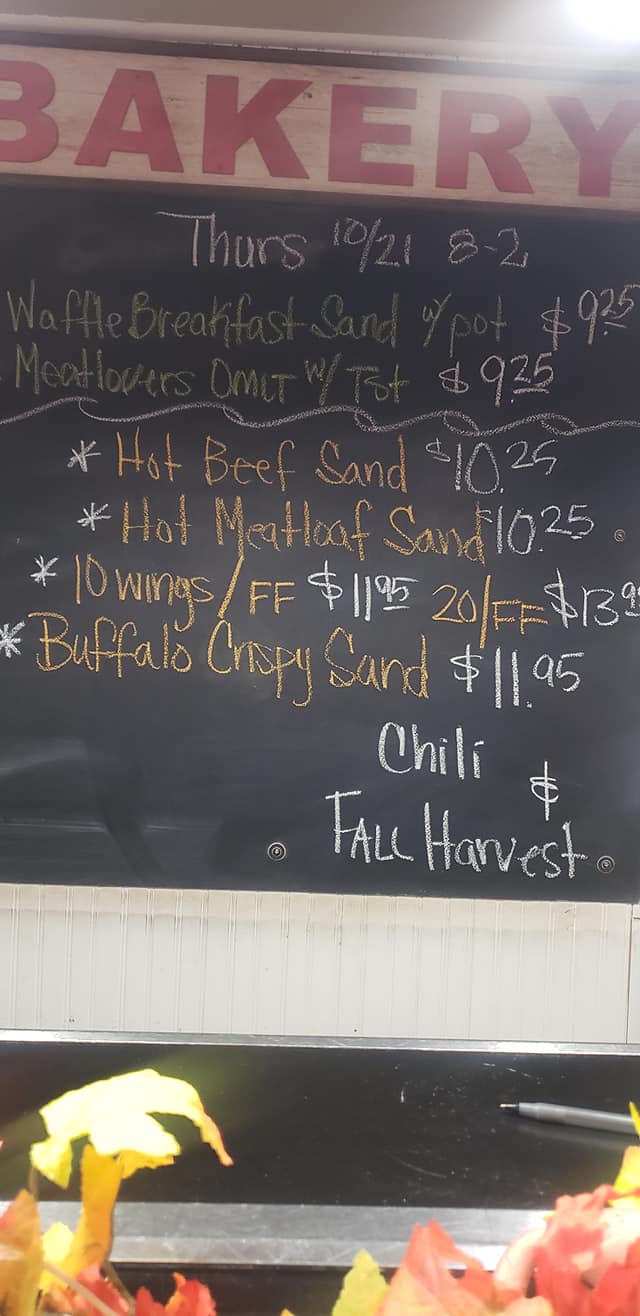 BAKERY
Thurs 10/21 8-2
Waffle Breakfast Sand w/ pot $9.25
Meatlovers Omlt w/ Tst $9.25
* Hot Beef Sand $10.25
* Hot Meatloaf Sand $10.25
* 10 wings/FF $11.95 20/FF $13.9
* Buffalo Crispy Sand $11.95
Chili
&
Fall Harvest